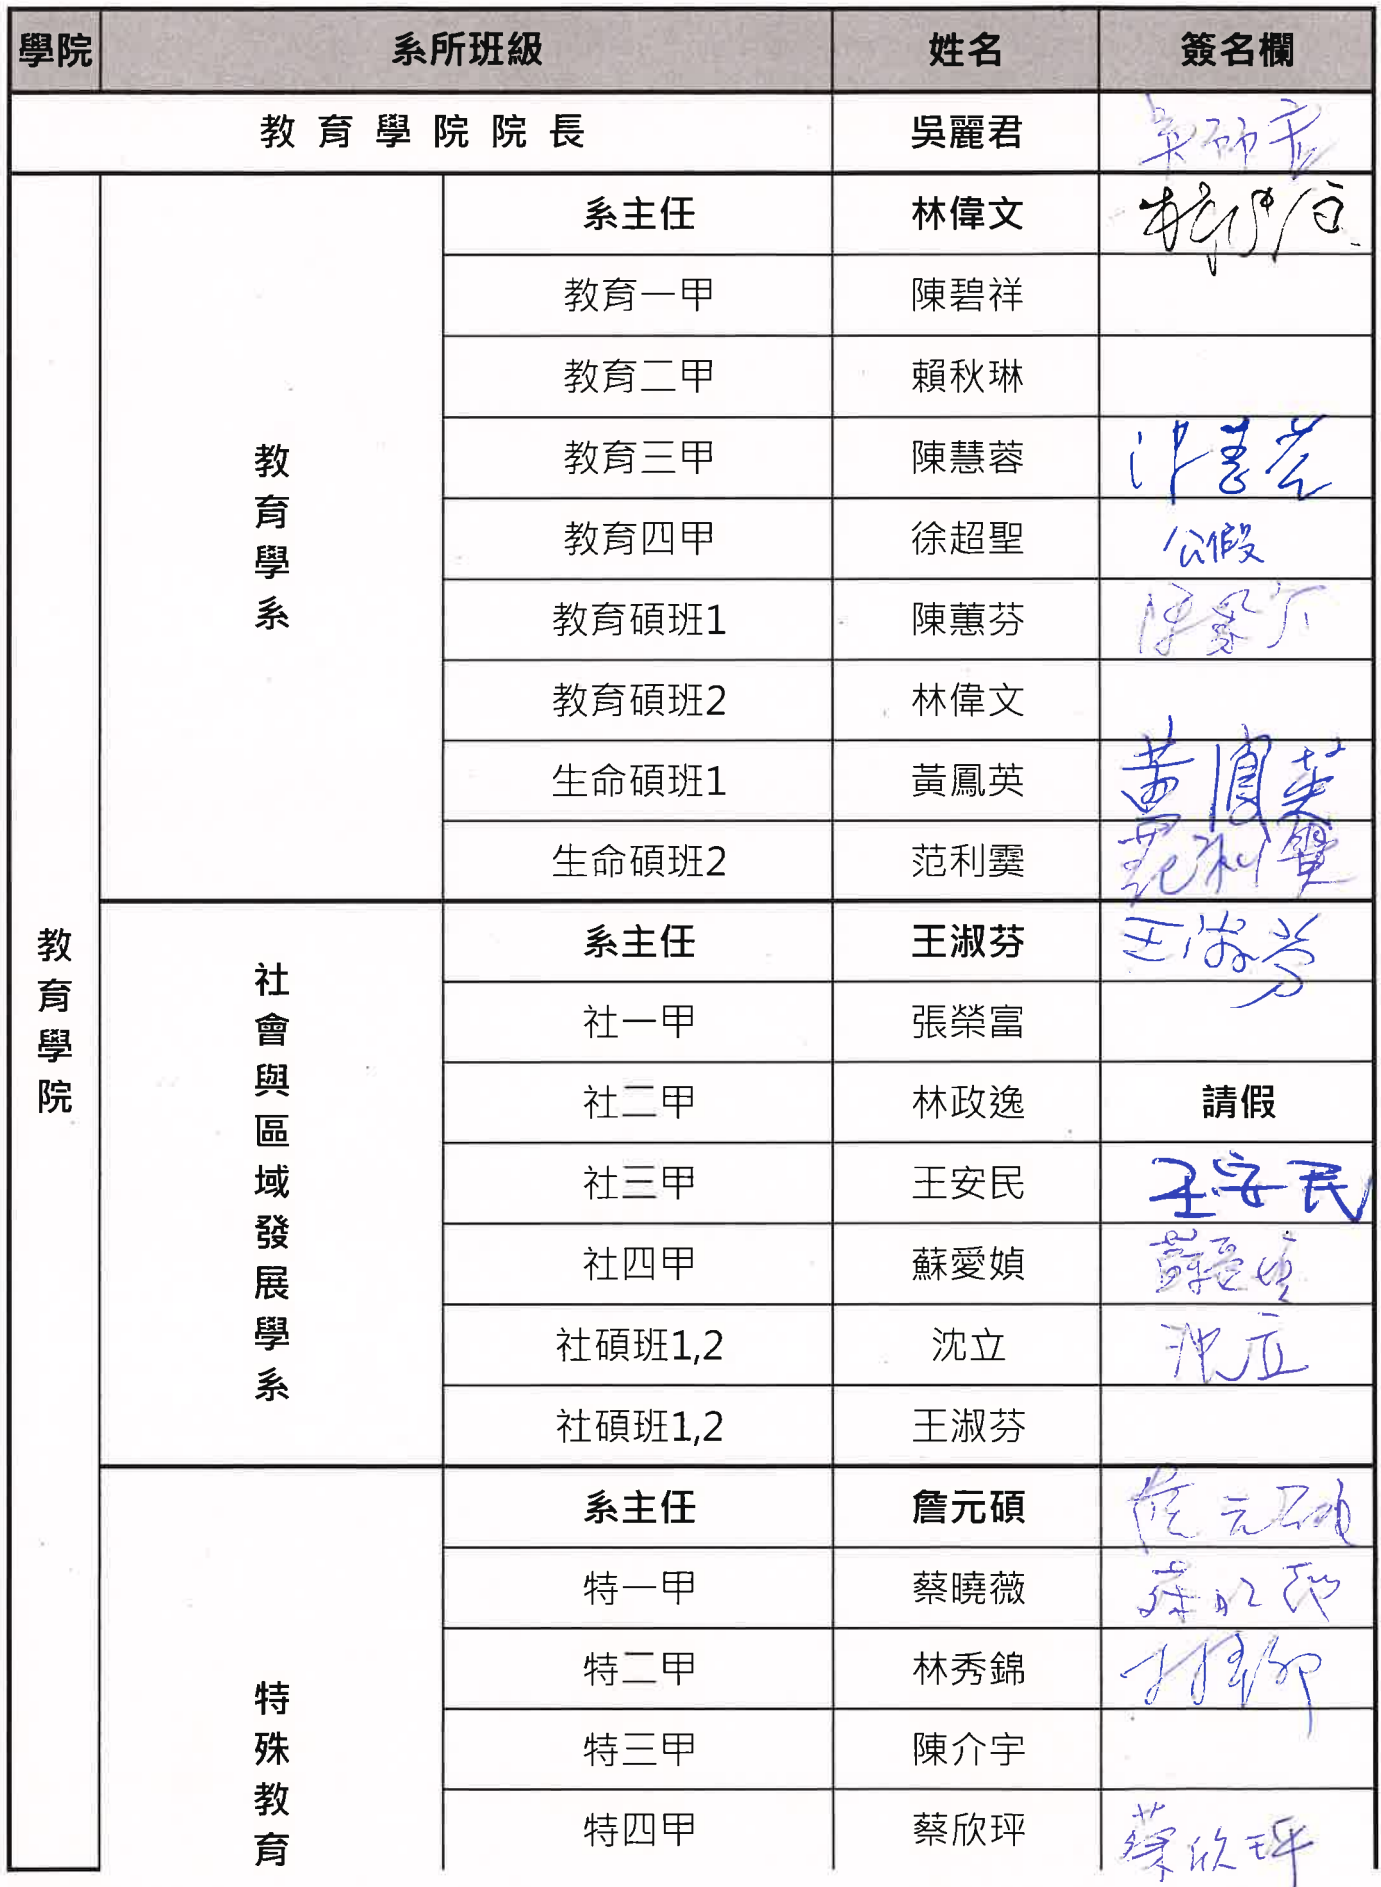 學院 系所班級 姓名 簽名欄
教育學院院長 吳麗君
教育學院
教育學系
系主任 林偉文
教育一甲 陳碧祥
教育二甲 賴秋琳
教育三甲 陳慧蓉
教育四甲 徐超聖 公假
教育碩班1 陳蕙芬
教育碩班2 林偉文
生命碩班1 黃鳳英 黃鳳英
生命碩班2 范利霙 范利霙
社會與區域發展學系
系主任 王淑芬 王淑芬
社一甲 張榮富
社二甲 林政逸 請假
社三甲 王安民 王安民
社四甲 蘇愛媜 蘇愛媜
社碩班1,2 沈立 沈立
社碩班1,2 王淑芬
特殊教育
系主任 詹元碩 詹元碩
特一甲 蔡曉薇
特二甲 林秀錦
特三甲 陳介宇
特四甲 蔡欣玶 蔡欣玶